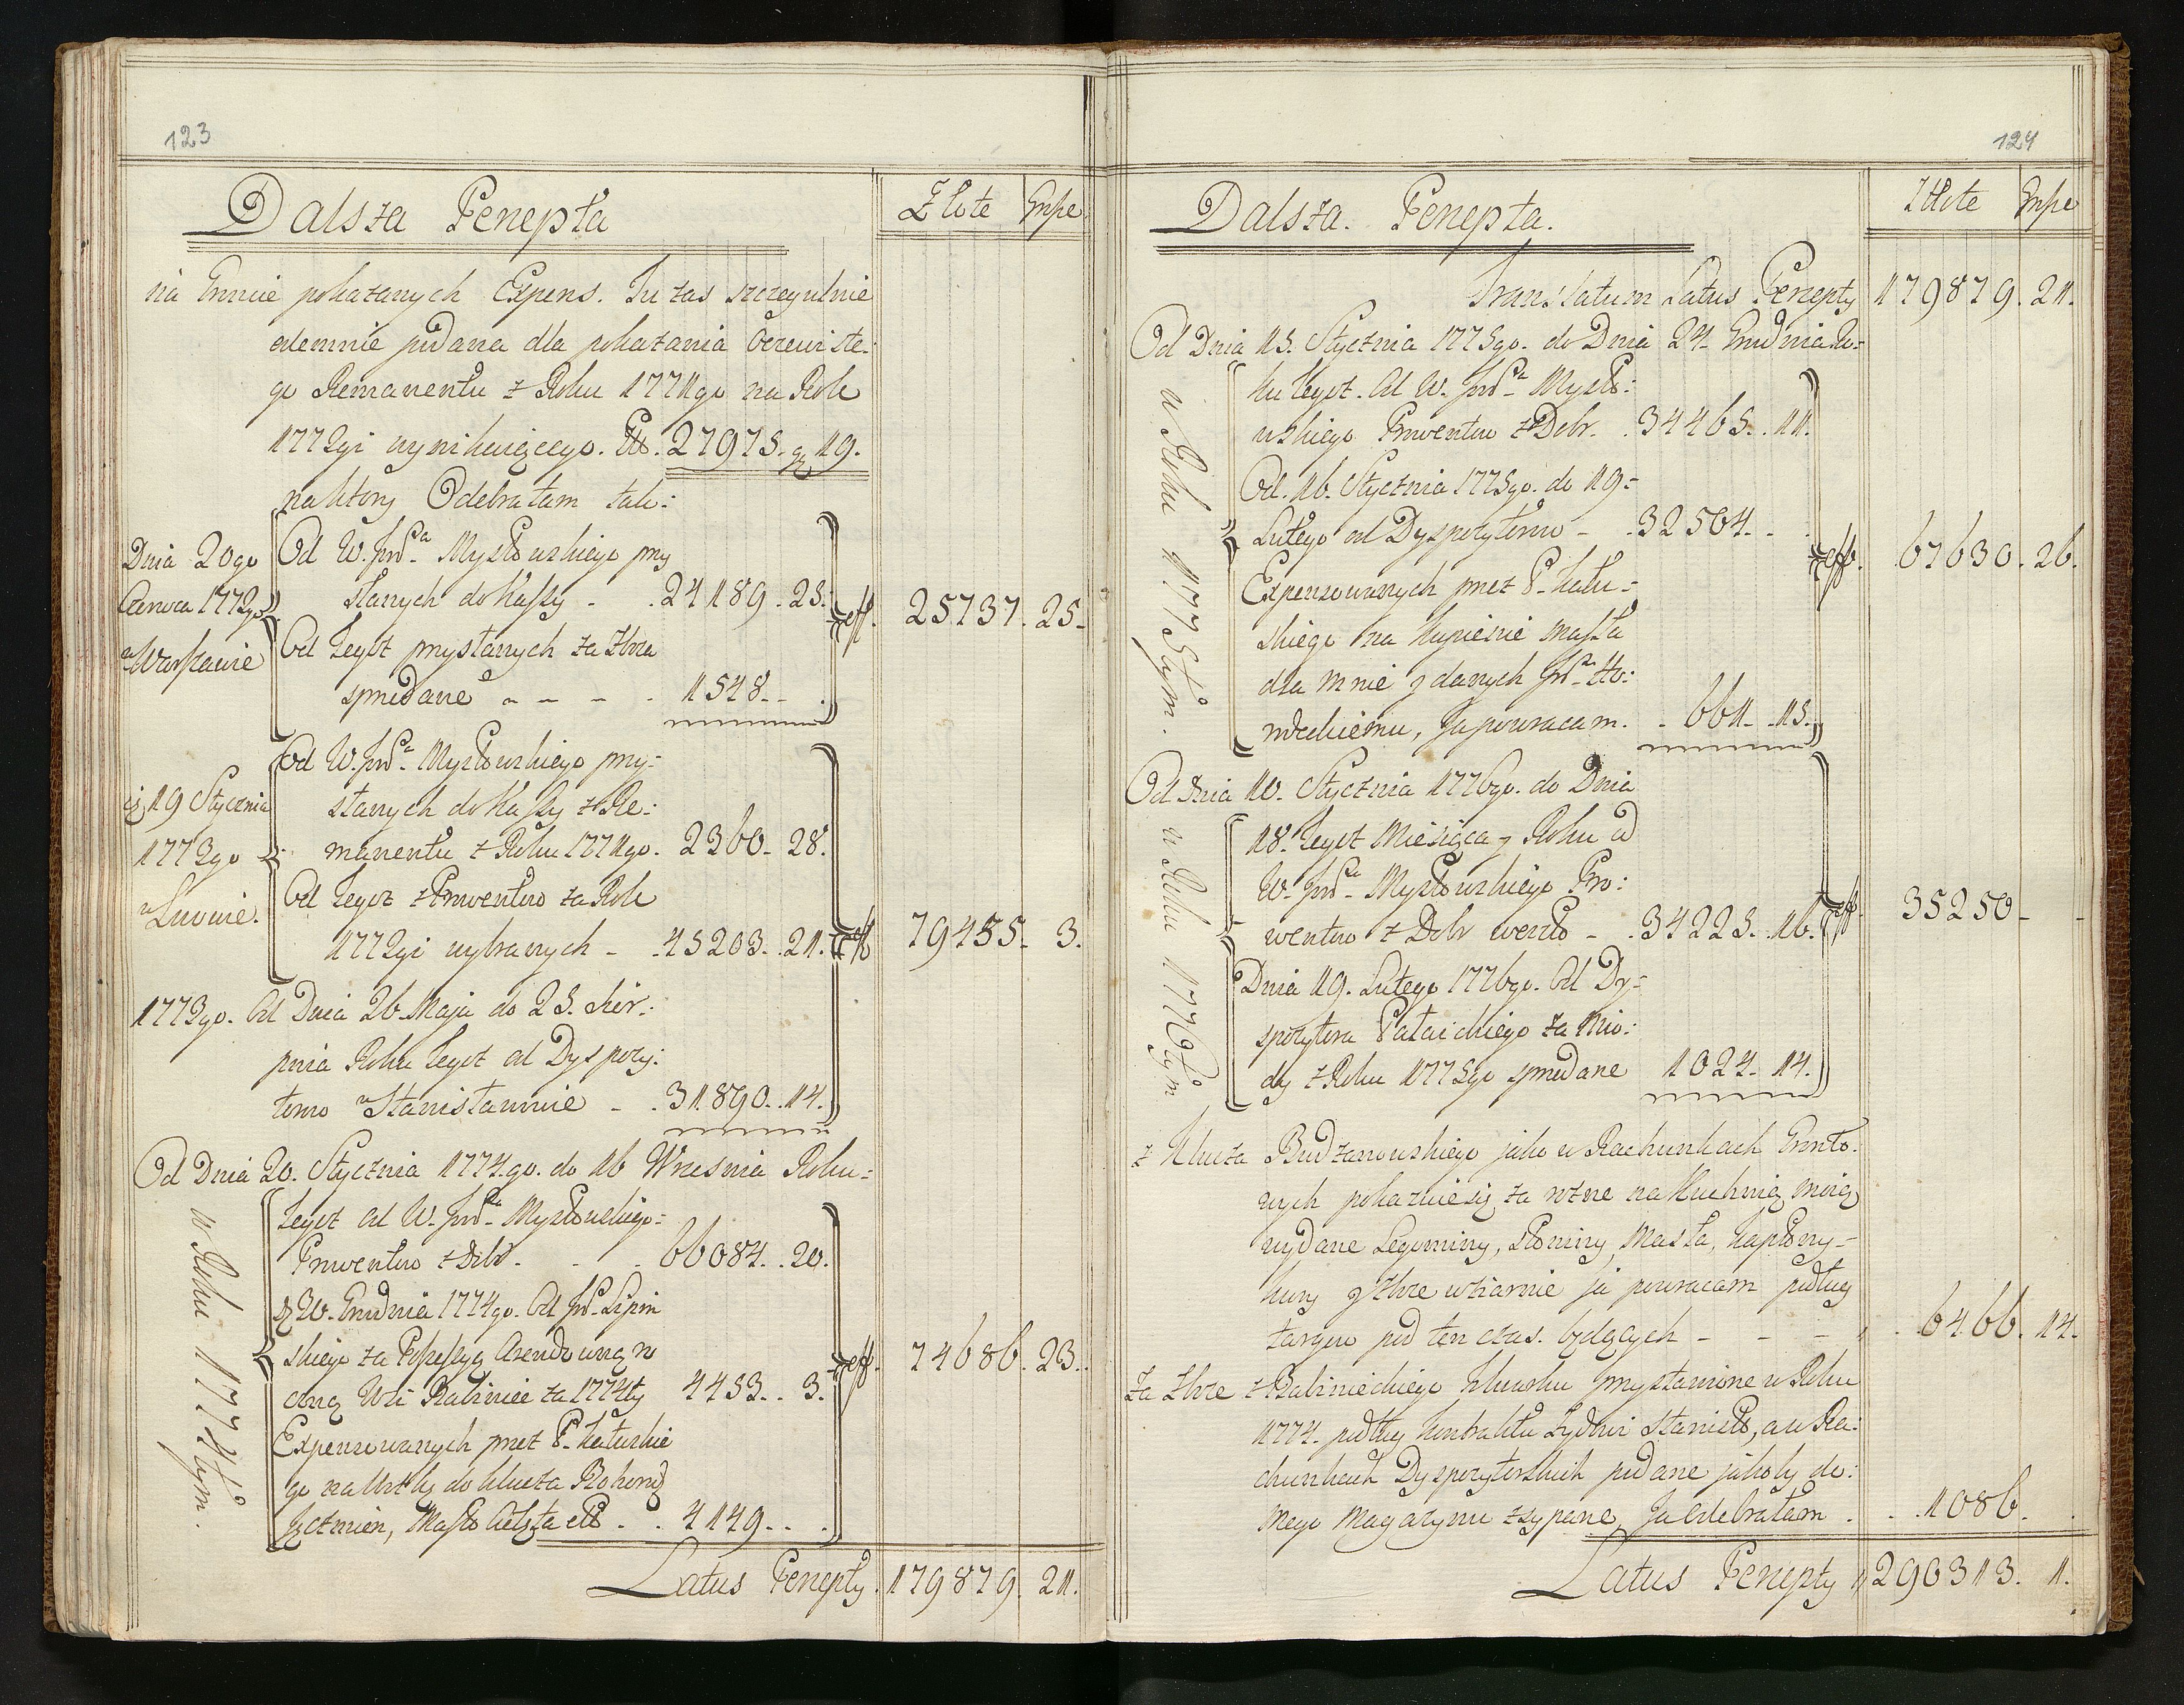 123
Dalsza Percepta
Złote Grosze
na Gruncie pokazanych Expens. Tu zaś szczegulnie
odemnie podana dla pokazania Oczewiste:
go Remanentu z Roku 1771go na Rok
1772gi wynikaiącego. Zło. 27975. gr 19.
na który Odebrałam tak:
Dnia 20go
Czerwca 1772go
w Warszawie
Od W. Jmśa Mysłowskiego przy
słanych do Kassy - . 24189. 25.
Od tegoż przysłanych za zboża
sprzedane - - - . 1548. - .
eff. 25737. 25.
19 Stycznia
1773go
w Lwowie.
Od W. Jmśa Mysłowskiego przy-
słanych do Kassy z Re:
manentu z Roku 1771go. 2360. 28.
Od tegoż z Prowentow za Rok
1772gi wybranych - . 45203. 21.
eff 79455. 3.
1773go. Od Dnia 26. Maja do 25. Sier:
pnia Roku tegoż od Dyspozy:
torow w Stanisławowie - . 31890. 14.
Od Dnia 20. Stycznia 1774.go. do 16 Wrzesnia Roku-
w Roku 1774tym.
tegoż od W. Jmśa Mysłowskiego-
Prowentow z Dobr. . . 66084. 20.
10. Grudnia 1774go. Od Jmś Lipin
skiego za Possessyą Arendowną ro
czną Wsi Babiniec za 1774ty 4453. . 3.
Expensowanych przez P. Kałuskie
go na Wodkę do klucza Rohoro
Jęczmien, Masło Cielęta etc . . 4149. . .
eff. 74686. 23.
Latus Percepty. 179879. 21.
124
Dalsza. Percepta.
Złote Grosze
Translatum Latus Percepty 179879. 21.
Od Dnia 15. Stycznia 1775go. do Dnia 24 Grudnia Ro-
w Roku 1775tym.
ku tegoż. Od W. Jmśa Mysło:
wskiego Prowentow z Dobr. . 34465. . 11.
Od. 16. Stycznia 1775go. do 19-
Lutego od Dyspozytorow - . 32504. . .
Expensowanych przez P. Kału-
skiego na kupienie masła
dla mnie y danych Jmśa Ho:
rodeckiemu, Ja powracam. . 661. . 15.
eff. 67630. 26.
Od Dnia 10. Stycznia 1776go. do Dnia
w Roku 1776tym
18. tegoż Miesiąca y Roku od
W. Jmśa Mysłowskiego Pro:
wentow z Dobr weszło - . 34225. 16.
Dnia 19. Lutego 1776go. Od Dy-
spozytora Pałaickiego za Mio:
dy z Roku 1775go sprzedane 1024. 14.
eff. 35250 - -
z Klucza Budzanowskiego jako w Rachunkach Grunto:
wych pokazuie się za rożne na Kuchnią moią
wydane Legominy, Słoniny, Masła, kapłony-
kury y zboże w ziarnie ja powracam podług
targow pod ten czas. będących - - - . 6466. 14.
za zboże z Babinieckiego klucza przystawione w Roku
1774. podług kontraktu Zydowi Stanisło, a w Ra:
chunkach Dyspozytorskich podane jakoby do:
mego Magazynu zsypane, Ja Odebrałam . . . 1086.
Latus Percepty 290313. 11.